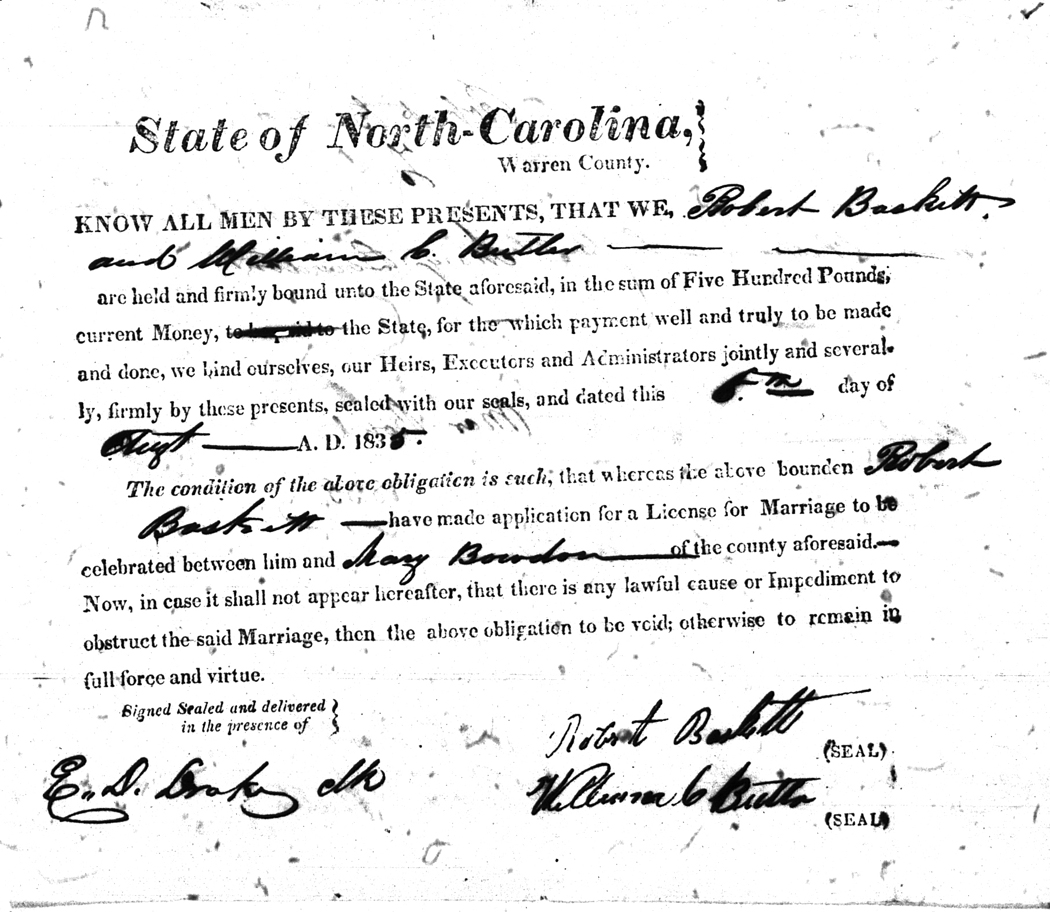 State of North-Carolina,
Warren County.
KNOW ALL MEN BY THESE PRESENTS, THAT WE, Robert Baskett
and William C. Butler
are held and firmly bound unto the State aforesaid, in the sum of Five Hundred Pounds,
current Money, to be paid to the State, for the which payment well and truly to be made
and done, we bind ourselves, our Heirs, Executors and Administrators jointly and several-
ly, firmly by these presents, sealed with our seals, and dated this 5th day of
Augt A. D. 1835.
The condition of the above obligation is such, that whereas the above bounden Robert
Baskett have made application for a License for Marriage to be
celebrated between him and Mary Bowdon of the county aforesaid.
Now, in case it shall not appear hereafter, that there is any lawful cause or Impediment to
obstruct the said Marriage, then the above obligation to be void; otherwise to remain in
full force and virtue.
Signed Sealed and delivered
in the presence of
Robert Baskett (SEAL)
E. D. Drake clk
William C Butler (SEAL)